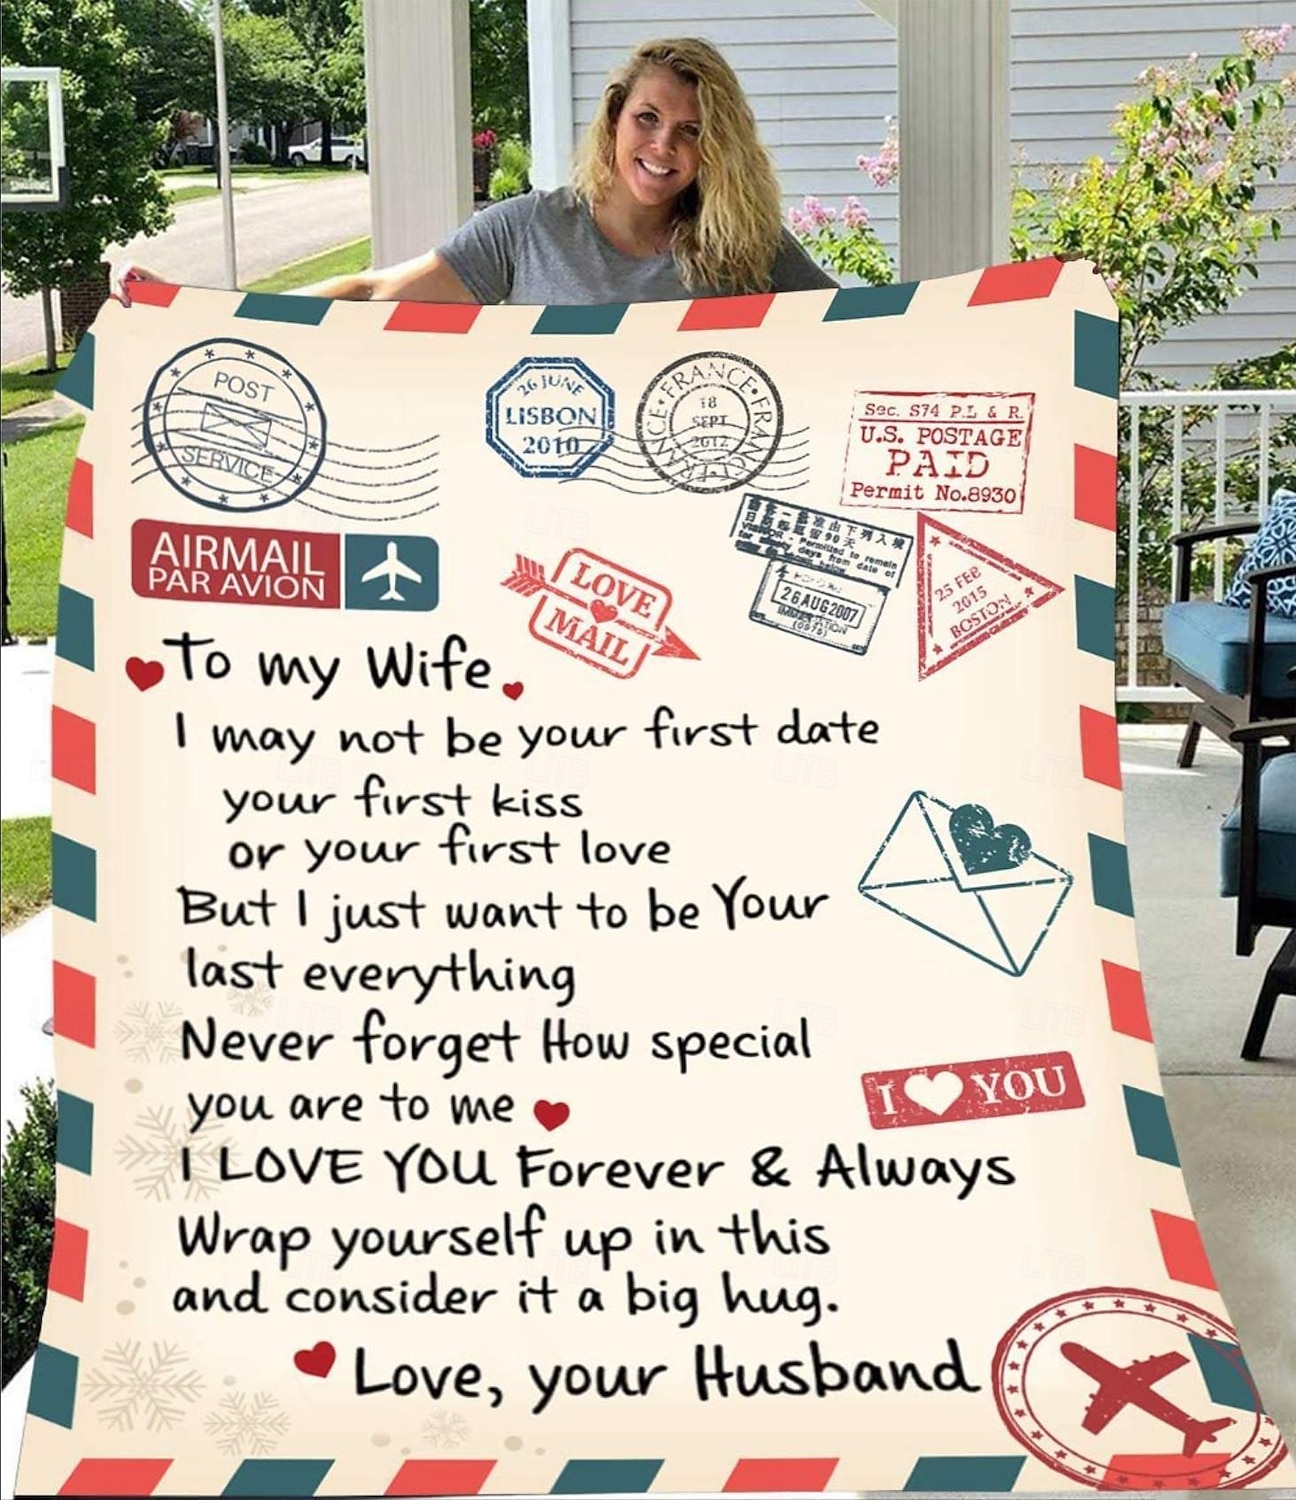 POST
SERVICE
26 JUNE
LISBON
2010
FRANCE · FRANCE · FRANCE
18
SEPT
2012
Sec. S74 P.L & R.
U.S. POSTAGE
PAID
Permit No.8930
AIRMAIL
PAR AVION
LOVE
MAIL
Permitted to remain
days from date of
26 AUG 2007
25 FEB
2015
BOSTON
To my Wife
I may not be your first date
your first kiss
or your first love
But I just want to be Your
last everything
Never forget How special
you are to me
I LOVE YOU Forever & Always
Wrap yourself up in this
and consider it a big hug.
Love, your Husband
I YOU